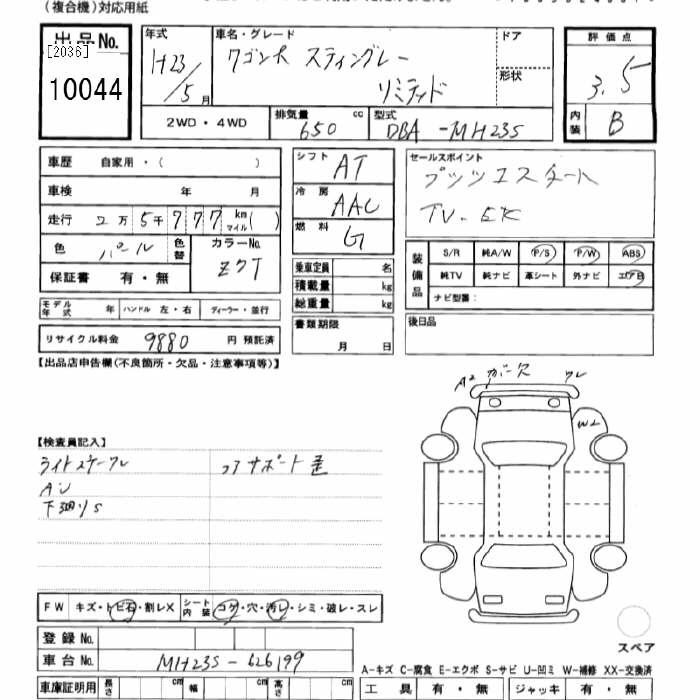 (複合機)対応用紙
出品No. [2036] 10044
年式 H23/5月
車名・グレード ワゴンR スティングレー リミテッド
ドア
形状
評価点 3.5
内装 B
2WD・4WD
排気量 650 cc
型式 DBA-MH23S
車歴 自家用・( )
車検 年 月
走行 2万5千777 km マイル( )
色 パール 色替
カラーNo. Z7T
保証書 有・無
シフト AT
冷房 AAC
燃料 G
乗車定員 名
積載量 kg
総重量 kg
セールスポイント
プッシュスタート
TV.
装備品 S/R 純A/W P/S P/W ABS
純TV 純ナビ 革シート 外ナビ エアB
ナビ型番:
モデル年式 年 ハンドル 左・右 ディーラー・並行
書類期限 月 日
後日品
リサイクル料金 9880 円 預託済
【出品店申告欄(不良箇所・欠品・注意事項等)】
A2 カバー欠 ワレ
W2
【検査員記入】
ライトステーワレ
コアサポート歪
AU
下廻りS
FW キズ・トビ石・割レX シート内装 コゲ・穴・汚レ・シミ・破レ・スレ
登録No.
車台No. MH23S-626199
スペア
A-キズ C-腐食 E-エクボ S-サビ U-凹ミ W-補修 XX-交換済
車庫証明用 長さ cm 幅 cm 高さ cm
工具 有・無 ジャッキ 有・無